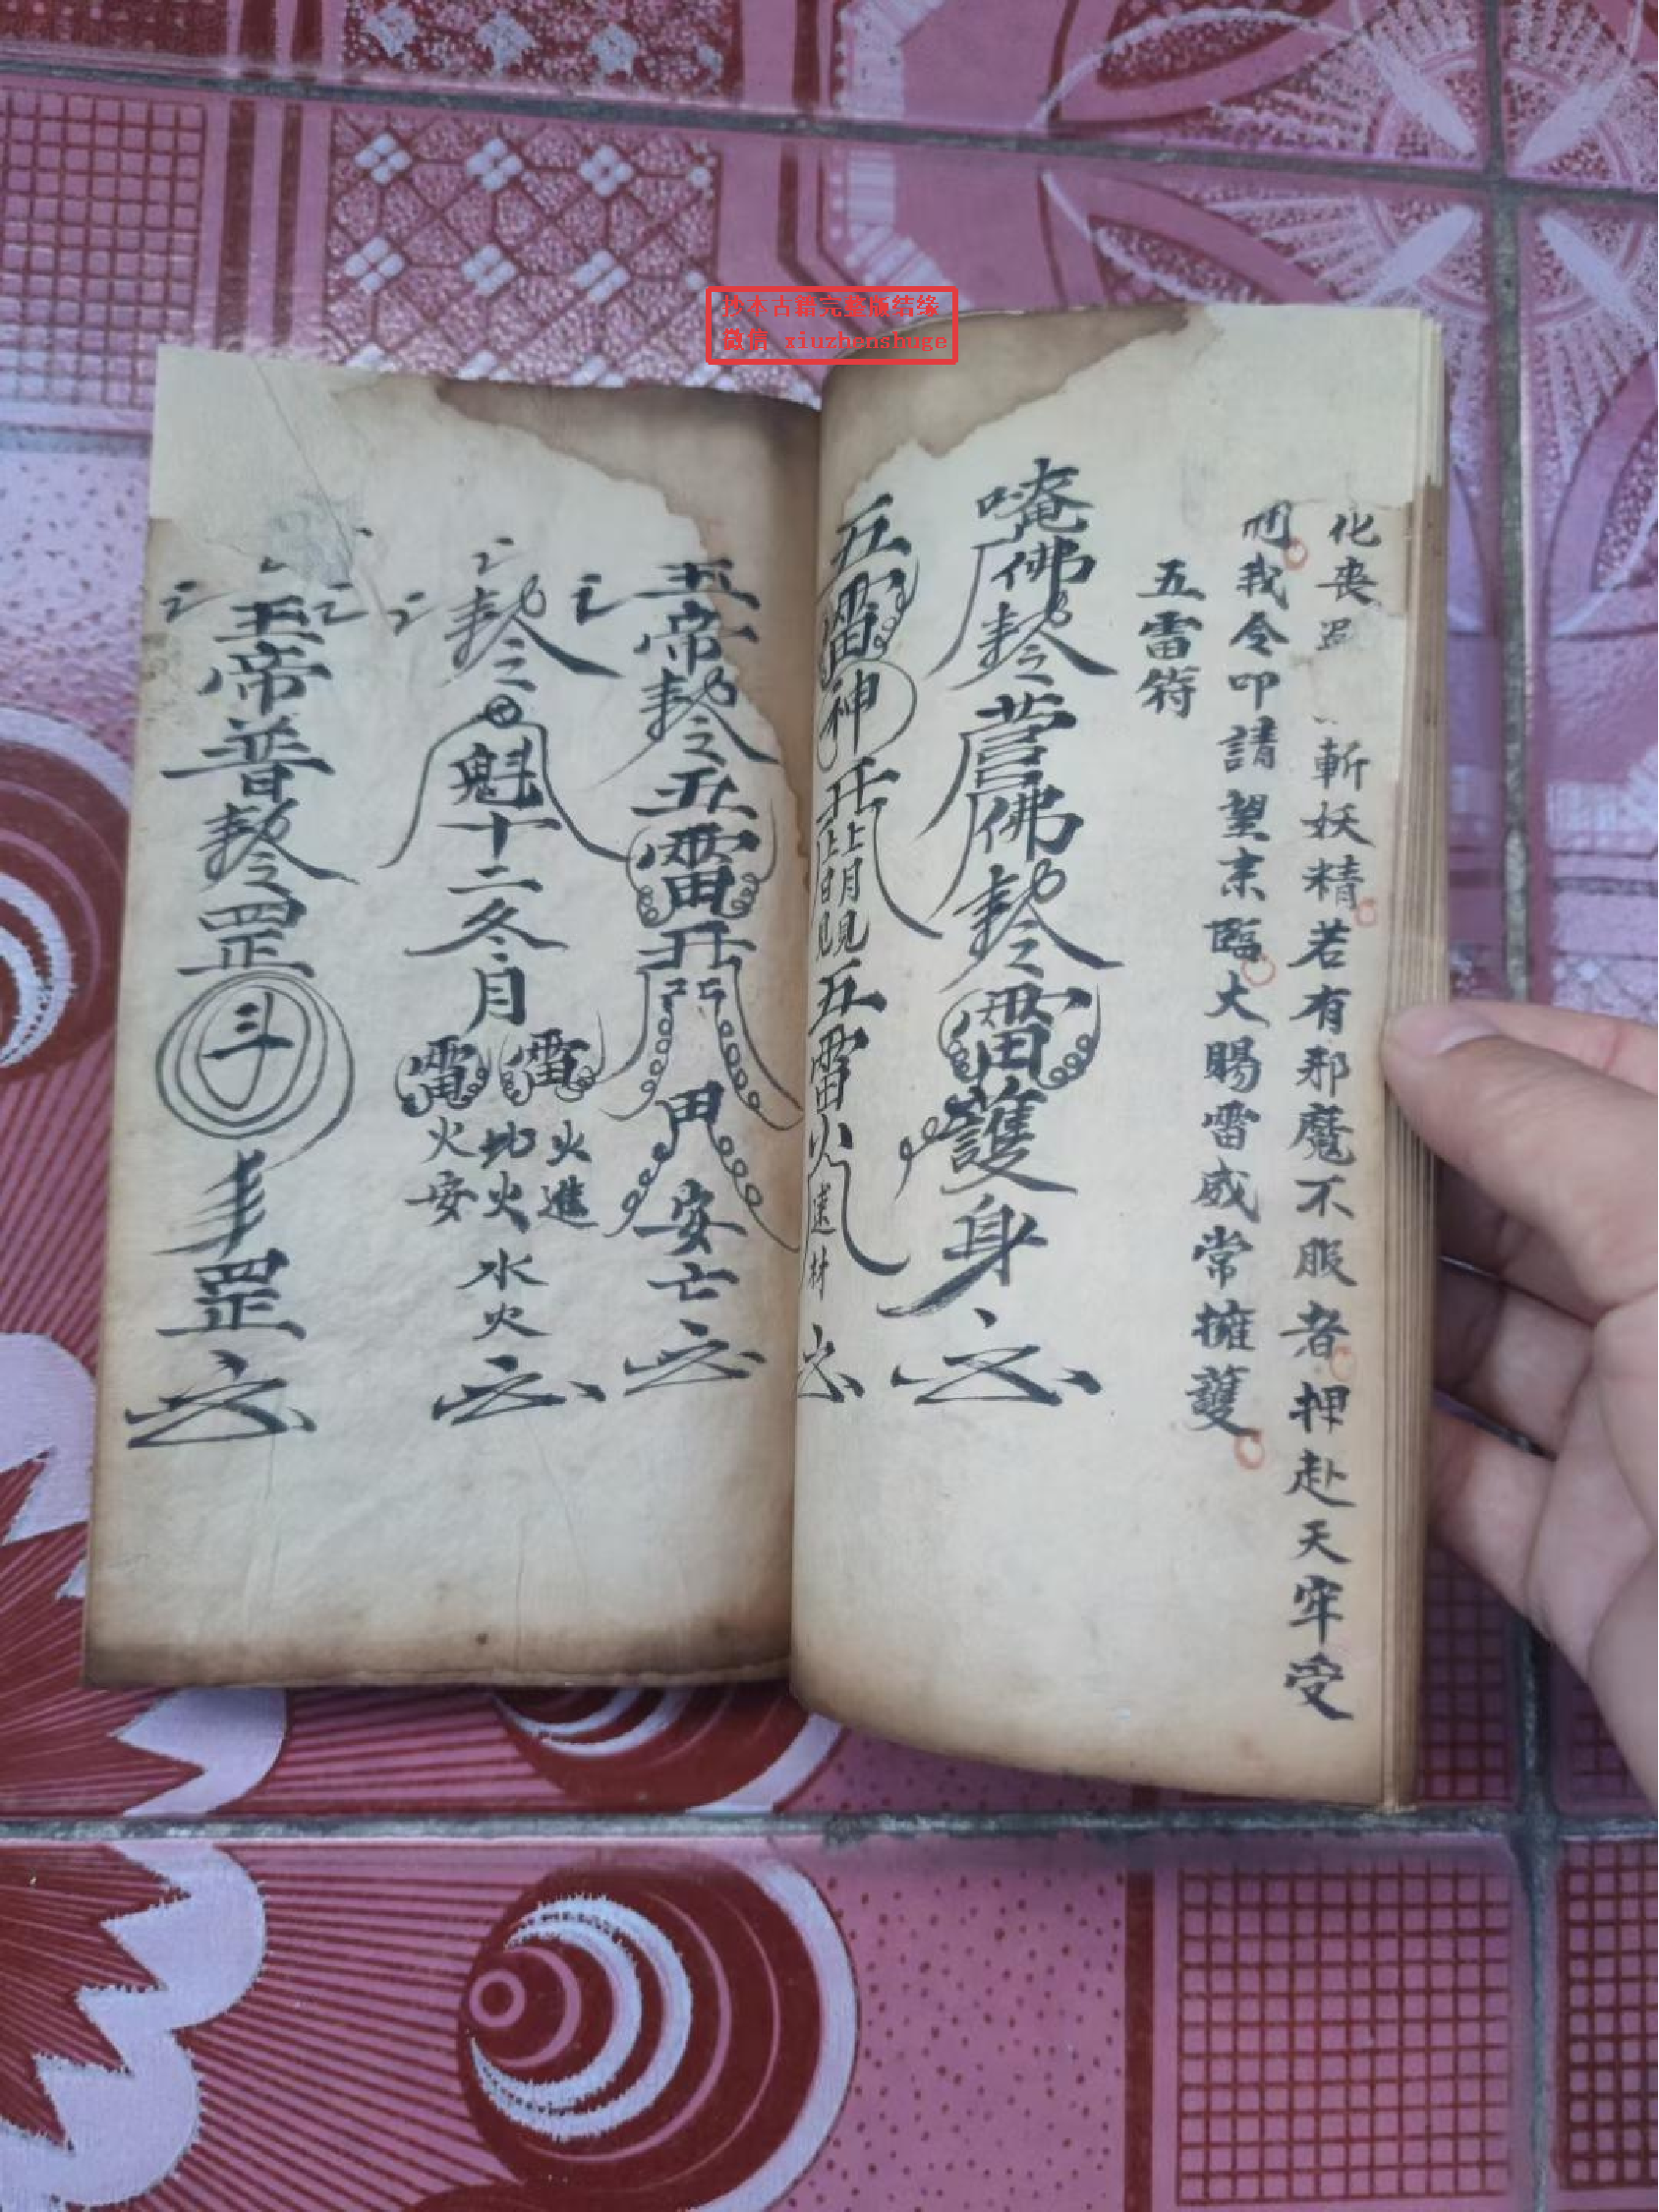 抄本古籍完整版结缘
微信 xiuzhenshuge
化丧 斬妖精若有邪魔不服者押赴天牢受
我今叩請望来臨大賜雷威常擁護
五雷符
唵佛勅令營佛勅令雷護身
五雷神 上日見 上月見 五雷火
五帝勅令五雷 安亡
勅令魁十二冬月
雷 雷
火安 地火 火進
水火
帝普勅令罡斗罡